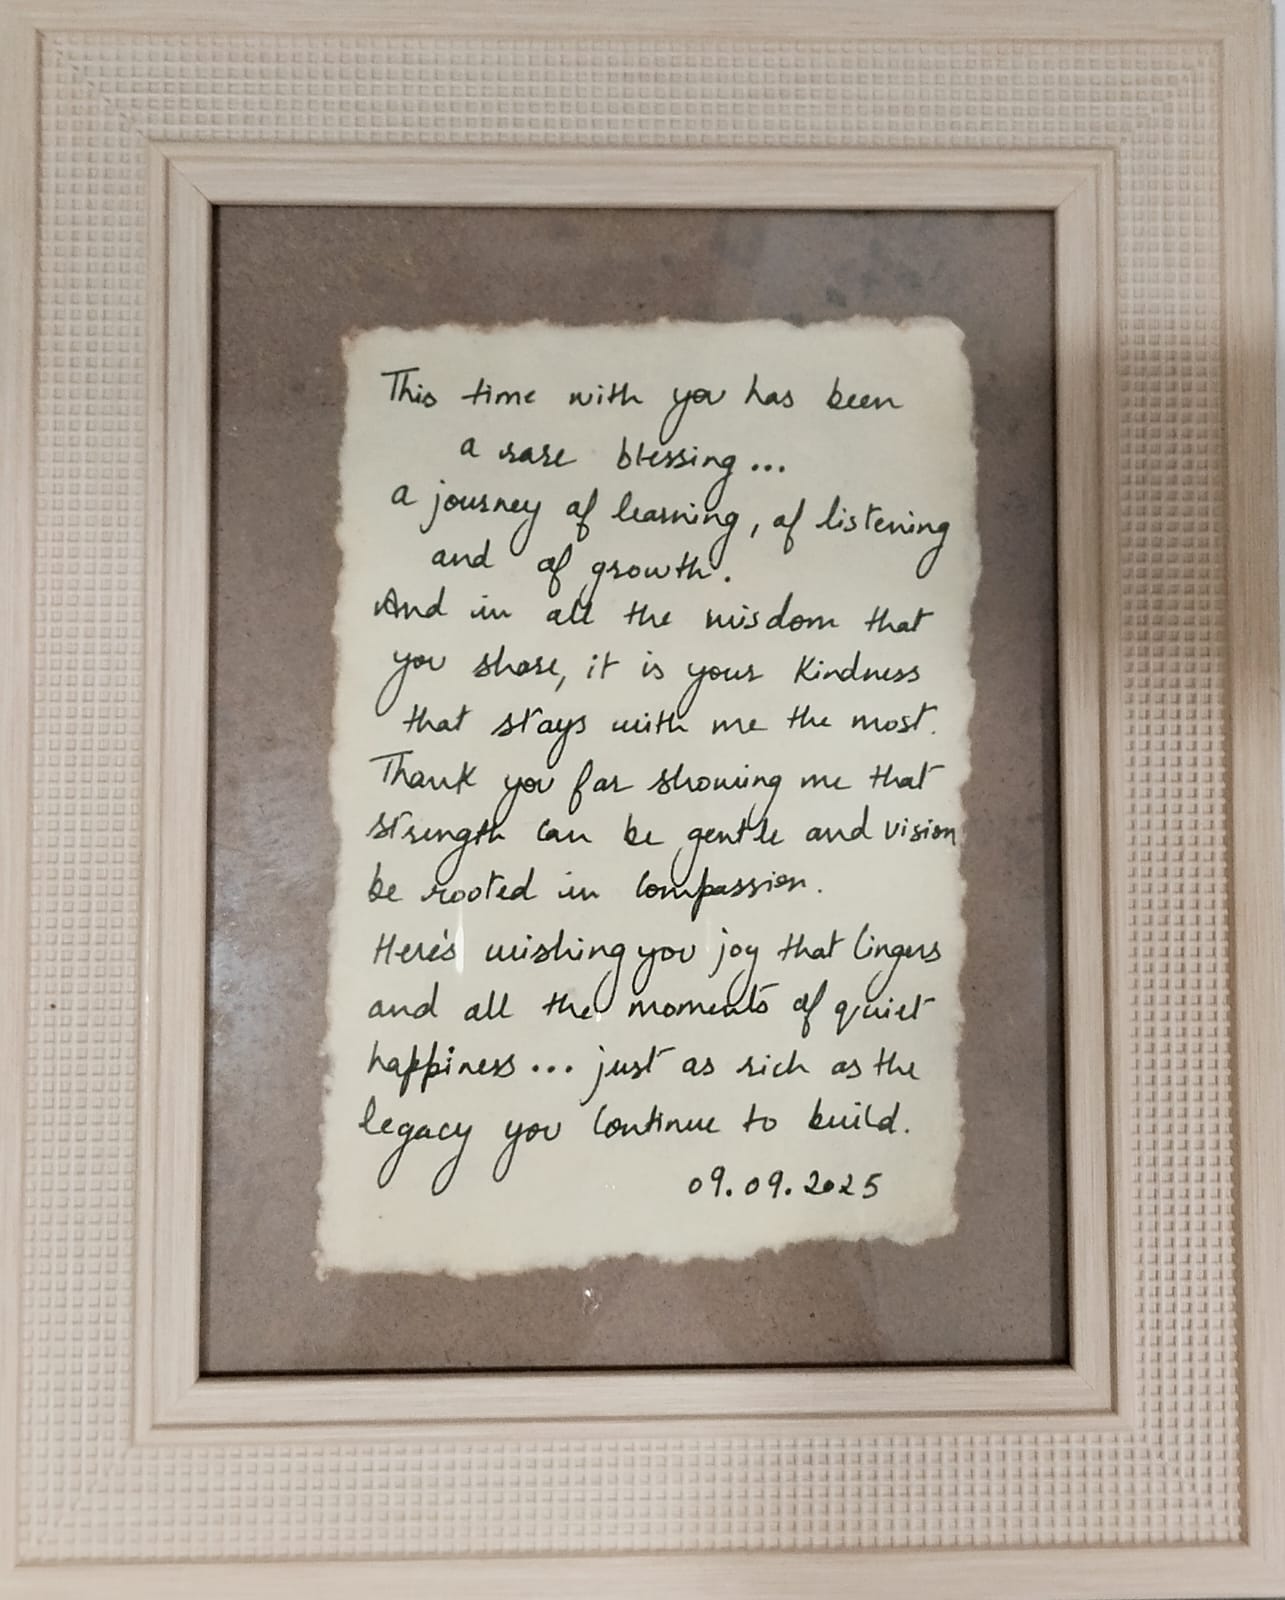 This time with you has been
a rare blessing...
a journey of learning, of listening
and of growth.
And in all the wisdom that
you share, it is your kindness
that stays with me the most.
Thank you for showing me that
strength can be gentle and vision
be rooted in compassion.
Here's wishing you joy that lingers
and all the moments of quiet
happiness... just as rich as the
legacy you continue to build.
09.09.2025